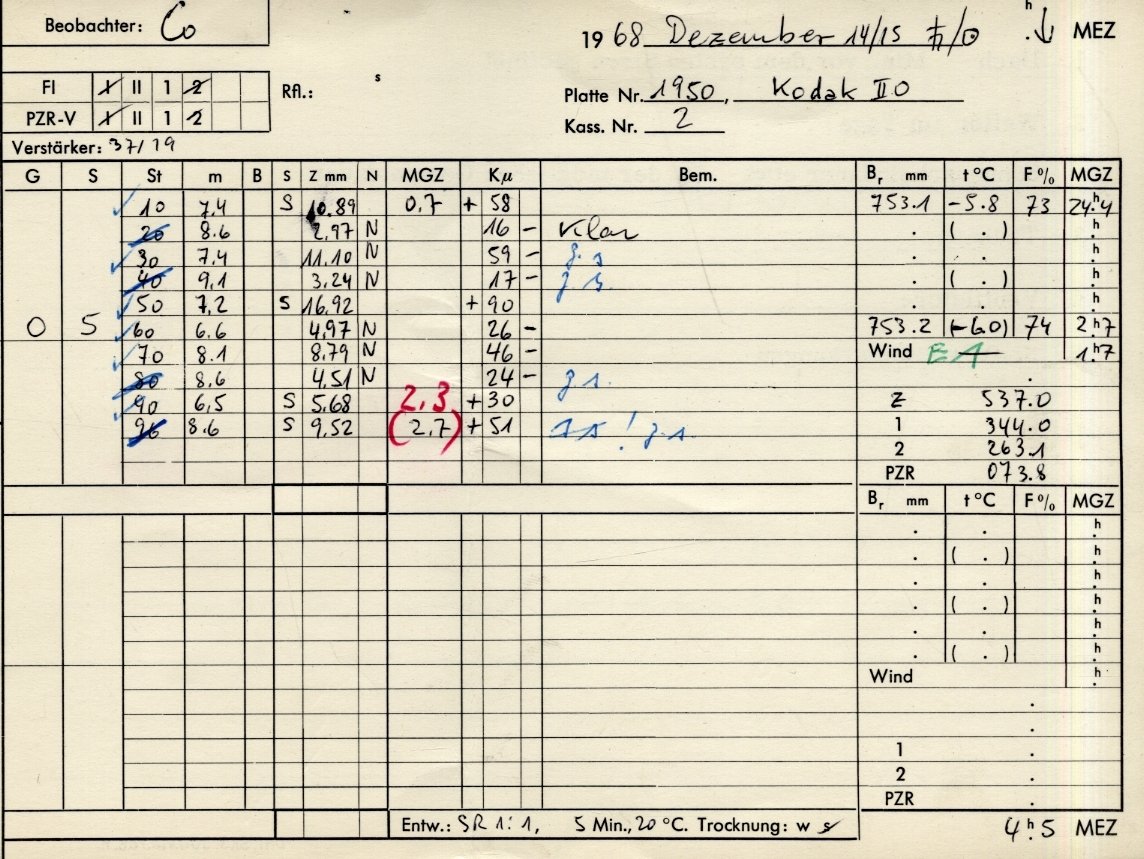 Beobachter: Co
1968 Dezember 14/15 ♄/☉ . h ↓ MEZ
FI I II 1 2
PZR-V I II 1 2
Rfl.: s
Platte Nr. 1950, Kodak IIO
Kass. Nr. 2
Verstärker: 37/19
G S St m B S Z mm N MGZ Kμ Bem. Br mm t°C F% MGZ
10 7.4 S 10.89 0.7 + 58 753.1 -5.8 73 24h.4
20 8.6 2.97 N 16 - Klar . ( . ) h.
30 7.4 11.10 N 59 - z.s . . h.
40 9.1 3.24 N 17 - z.s. . ( . ) h.
50 7.2 S 16.92 + 90 . . h.
O 5 60 6.6 4.97 N 26 - 753.2 (-6.0) 74 2h.7
70 8.1 8.79 N 46 - Wind E 1 1h.7
80 8.6 4.51 N 24 - z.s. .
90 6.5 S 5.68 2.3 + 30 Z 537.0
96 8.6 S 9.52 (2.7) + 51 ! z.s. 1 344.0
2 263.1
PZR 073.8
Br mm t°C F% MGZ
. . h.
. ( . ) h.
. . h.
. ( . ) h.
. . h.
. ( . ) h.
Wind h.
.
.
1 .
2 .
PZR .
Entw.: SR 1:1, 5 Min., 20 °C. Trocknung: w s 4h.5 MEZ